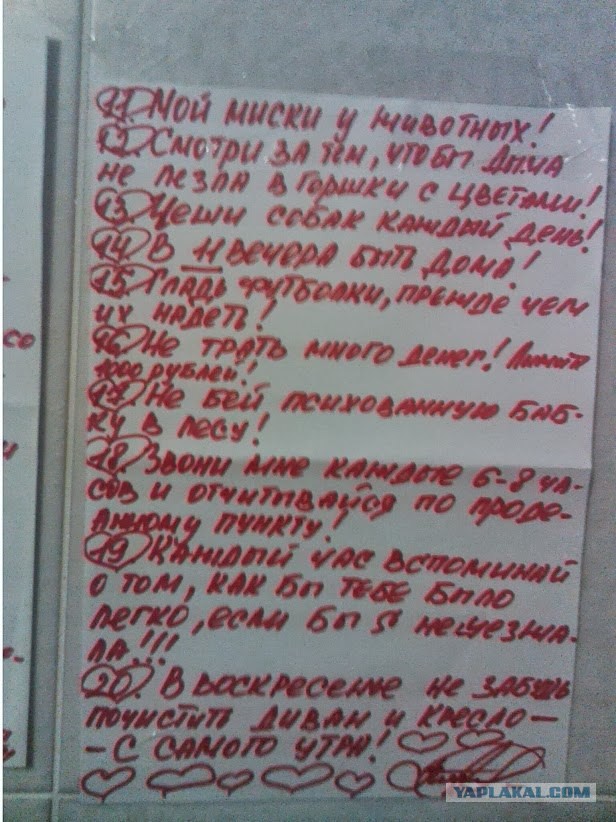 11. Мой миски у животных!
12. Смотри за тем, чтобы Дыма
не лезла в горшки с цветами!
13. Чеши собак каждый день!
14. В 11 вечера быть дома!
15. Гладь футболки, прежде чем
их надеть!
16. Не трать много денег! Лимит
1000 рублей!
17. Не бей психованную баб-
ку в лесу!
18. Звони мне каждые 6-8 ча-
сов и отчитывайся по проде-
ланному пункту!
19. Каждый час вспоминай
о том, как бы тебе было
легко, если бы я не уезжа-
ла!!!
20. В воскресение не забудь
почистить диван и кресло –
– с самого утра!
YAPLAKAL.COM